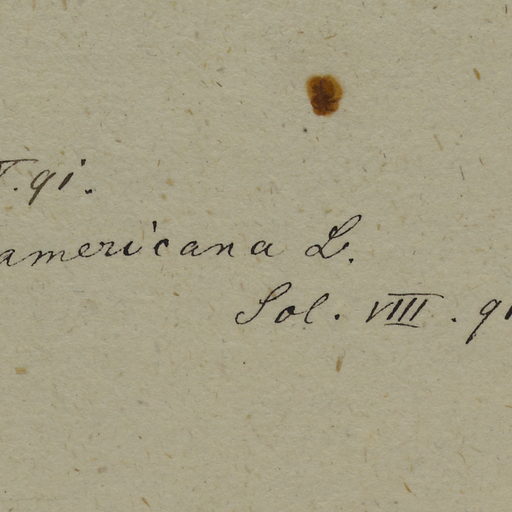 . 91.
americana L.
Sol. VIII. 91